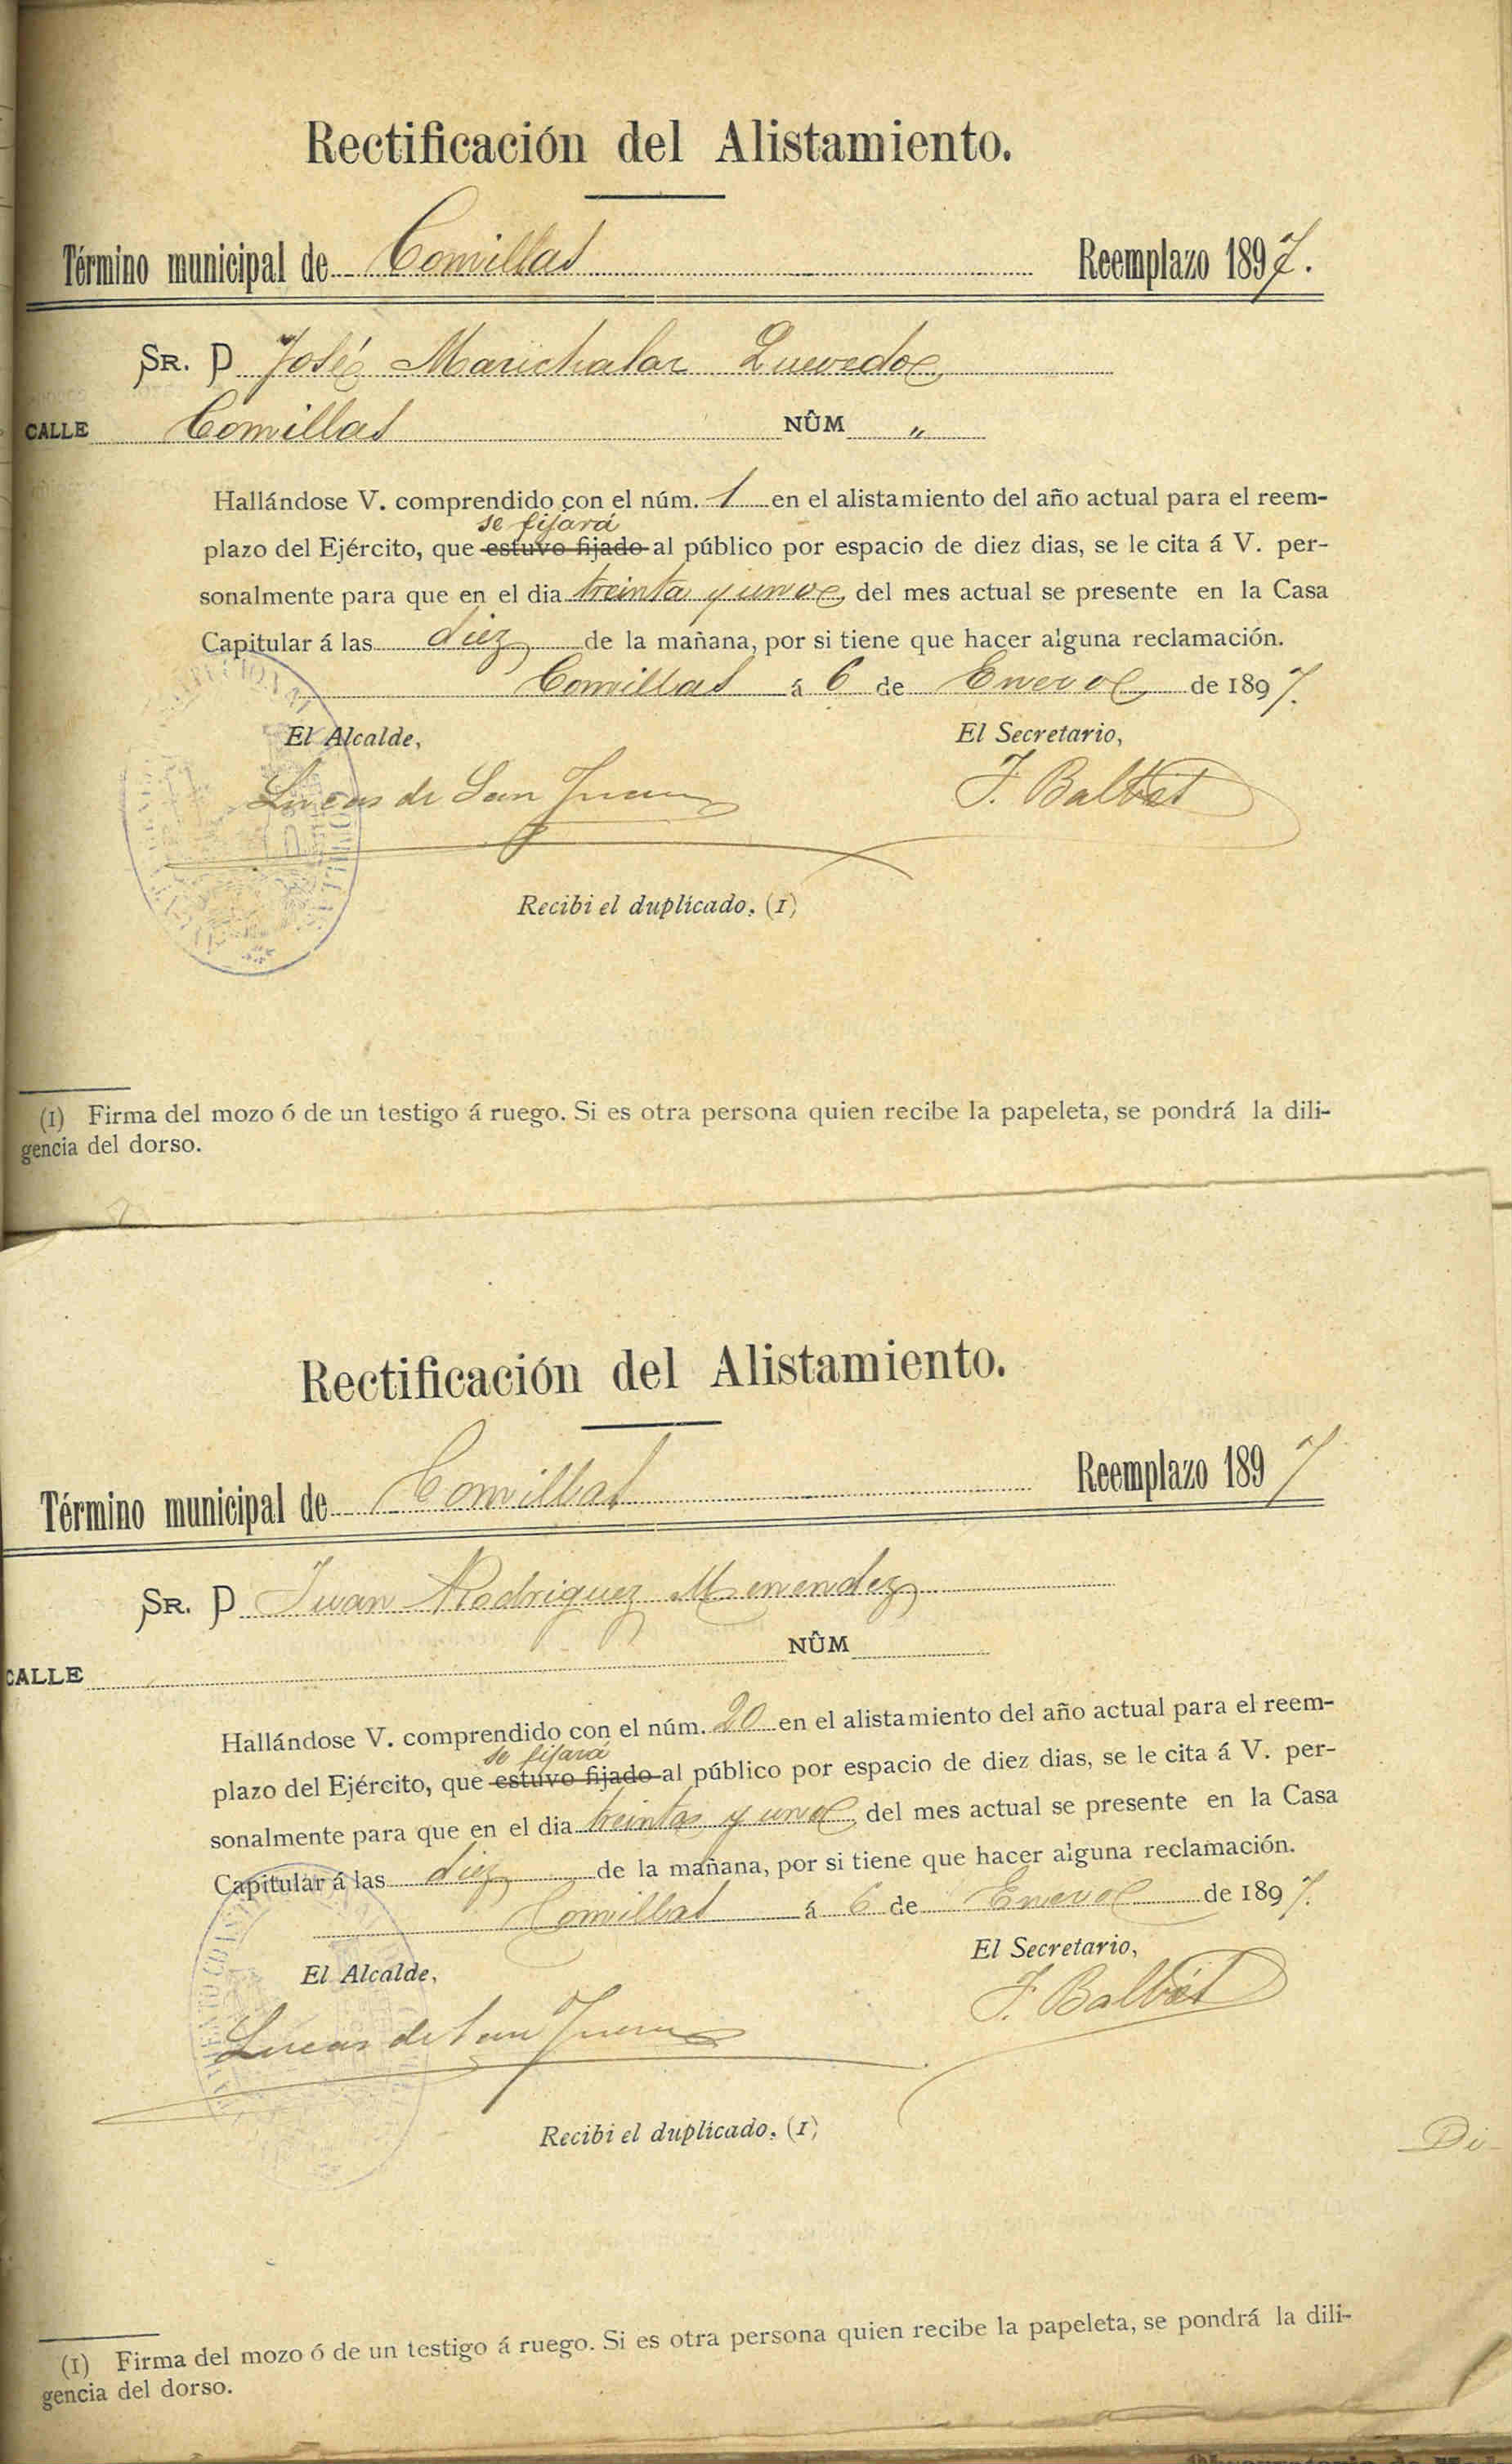 Rectificación del Alistamiento.
Término municipal de Comillas Reemplazo 1897.
SR. D José Marichalar Quevedo
CALLE Comillas NÚM "
Hallándose V. comprendido con el núm. 1 en el alistamiento del año actual para el reem-
se fijará
plazo del Ejército, que estuvo fijado al público por espacio de diez dias, se le cita á V. per-
sonalmente para que en el dia treinta y uno del mes actual se presente en la Casa
Capitular á las diez de la mañana, por si tiene que hacer alguna reclamación.
Comillas á 6 de Enero de 1897.
El Alcalde, El Secretario,
Lucas de San Juan F. Balbás
Recibi el duplicado, (1)
(1) Firma del mozo ó de un testigo á ruego. Si es otra persona quien recibe la papeleta, se pondrá la dili-
gencia del dorso.
Rectificación del Alistamiento.
Término municipal de Comillas Reemplazo 1897
SR. D Juan Rodriguez Menendez
CALLE NÚM
Hallándose V. comprendido con el núm. 20 en el alistamiento del año actual para el reem-
se fijará
plazo del Ejército, que estuvo fijado al público por espacio de diez dias, se le cita á V. per-
sonalmente para que en el dia treinta y uno del mes actual se presente en la Casa
Capitular á las diez de la mañana, por si tiene que hacer alguna reclamación.
Comillas á 6 de Enero de 1897.
El Alcalde, El Secretario,
Lucas de San Juan F. Balbás
Recibi el duplicado, (1)
Di-
(1) Firma del mozo ó de un testigo á ruego. Si es otra persona quien recibe la papeleta, se pondrá la dili-
gencia del dorso.